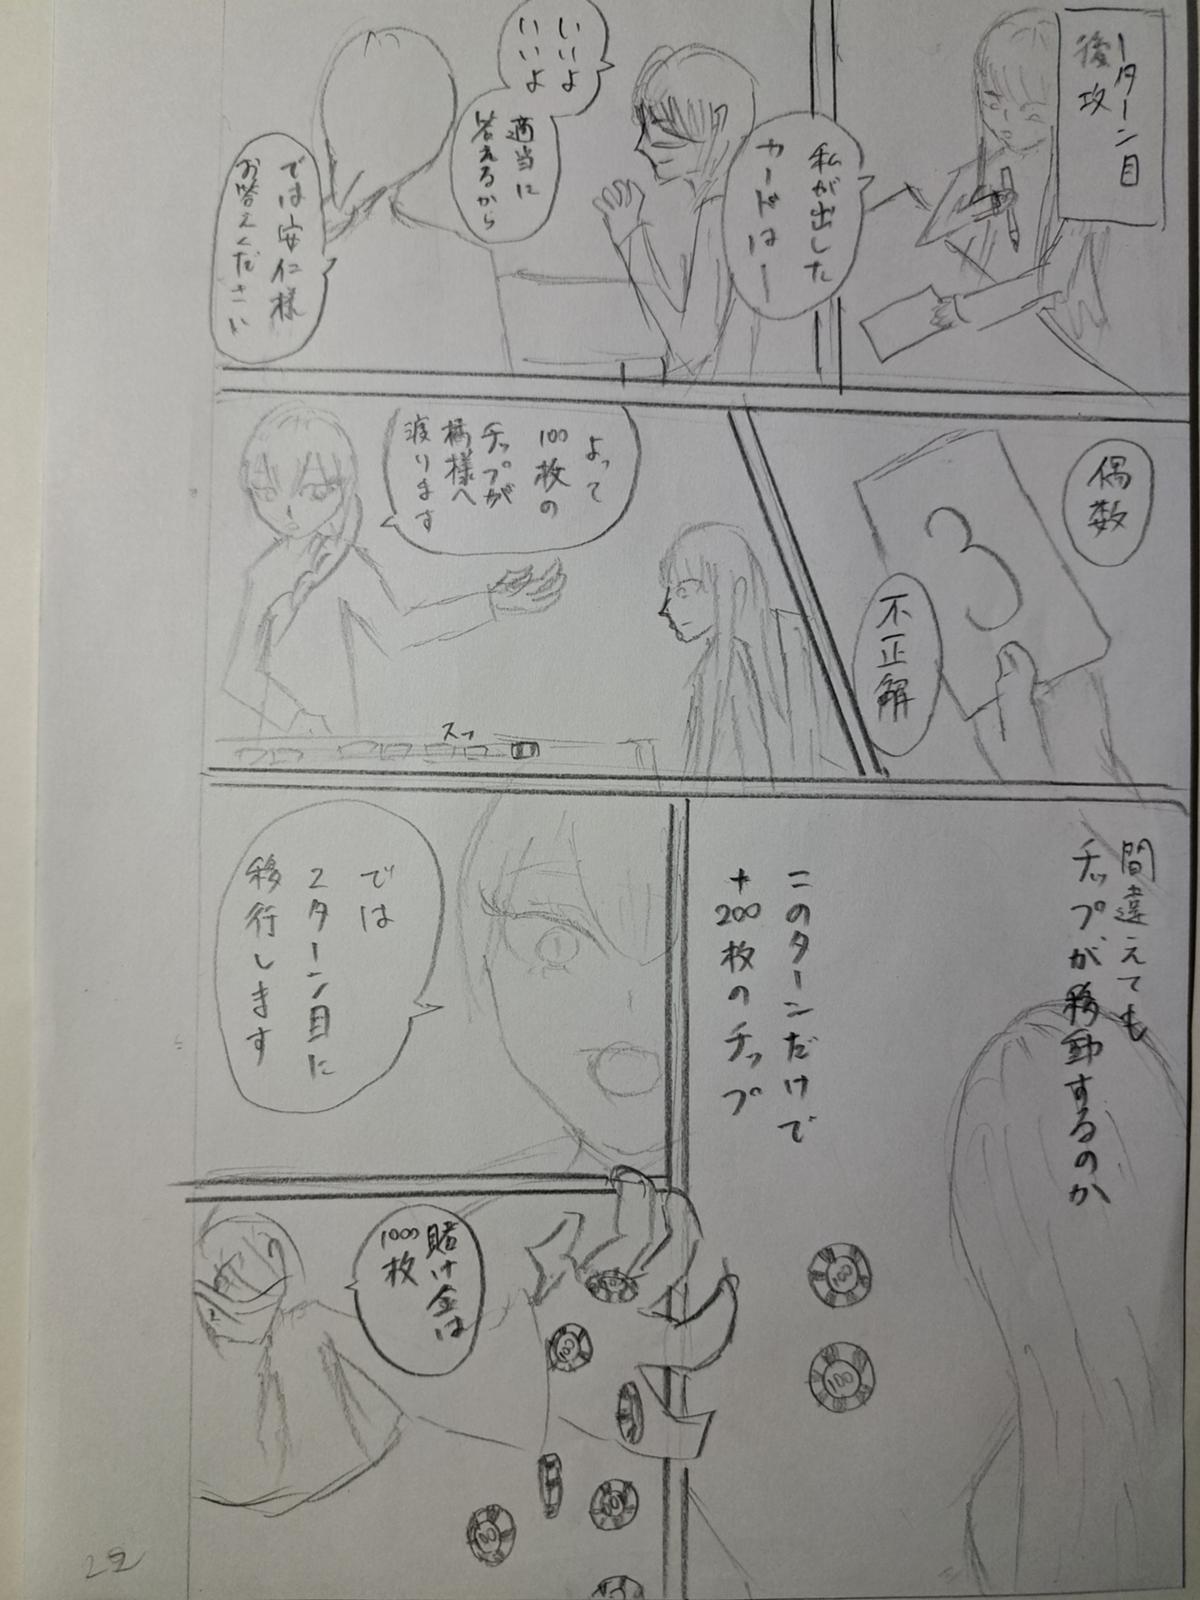 1ターン目
後攻
私が出した
カードはー
いいよ
いいよ
適当に
答えるから
では安仁様
お答えください
偶数
3
不正解
よって
100枚の
チップが
橘様へ
渡ります
スッ
間違えても
チップが移動するのか
このターンだけで
+200枚のチップ
100
100
では
2ターン目に
移行します
賭け金は
1000枚
100
100
100